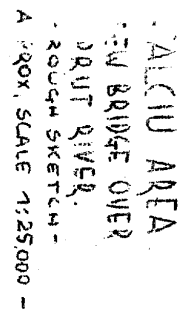 ALCIU AREA
EW BRIDGE OVER
PRUT RIVER.
- ROUGH SKETCH -
A ROX, SCALE 1:25,000 -